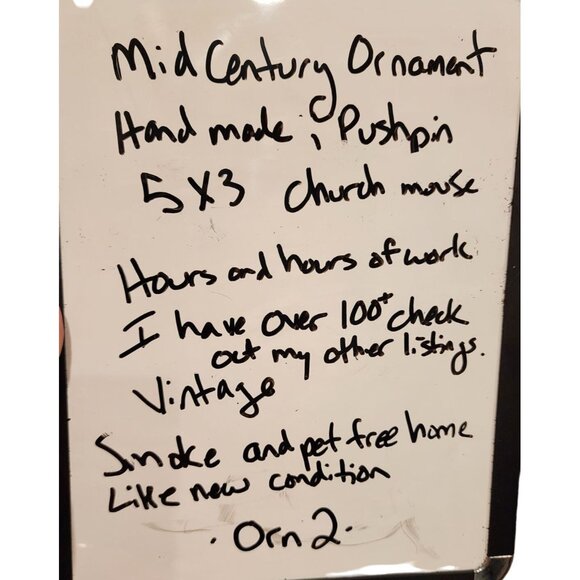 Mid Century Ornament
Hand made; Pushpin
5X3 Church mouse
Hours and hours of work
I have over 100+ check
out my other listings.
Vintage
Smoke and pet free home
Like new condition
· Orn 2 ·